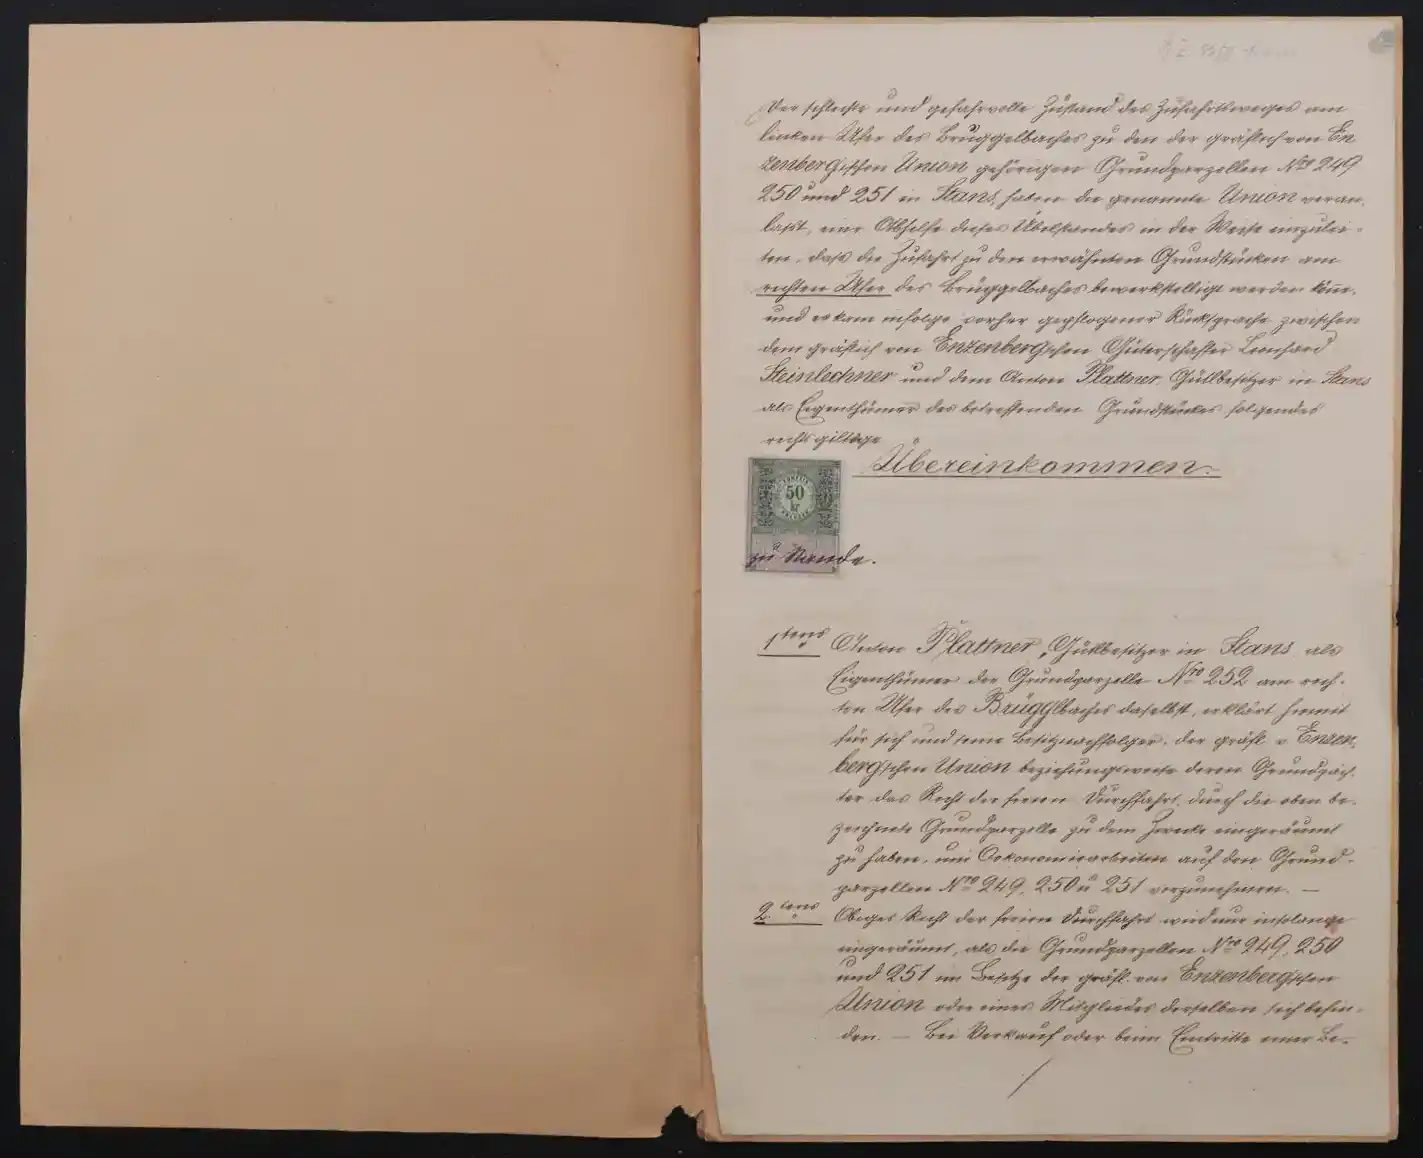 Der schlechte und gefahrvolle Zustand des Zufahrtsweges am
linken Ufer des Brüggelbaches zu den der gräflich von En
zenberg'schen Union gehörigen Grundparzellen Nro 249
250 und 251 in Stans, haben die genannte Union veran,
laßt, eine Abhilfe dieses Übelstandes in der Weise einzulei-
ten, daß die Zufahrt zu den erwähnten Grundstücken am
rechten Ufer des Brüggelbaches bewerkstelligt werden könne,
und es kam infolge vorher gepflogener Rücksprache zwischen
dem gräflich von Enzenberg'schen Güterschaffer Leonhard
Steinlechner und dem Anton Plattner, Güllbesitzer in Stans
als Eigenthümer des betreffenden Grundstückes folgendes
rechtsgiltige
Übereinkommen.
50
kr
zu Stande.
1tens Anton Plattner, Güllbesitzer in Stans als
Eigenthümer der Grundparzelle Nro 252 am rech-
ten Ufer des Brügglbaches daselbst, erklärt hiemit
für sich und seine Besitznachfolger, der gräfl. v Enzen,
berg'schen Union beziehungsweise deren Grundpäch-
ter das Recht der freien Durchfahrt durch die oben be-
zeichnete Grundparzelle zu dem Zwecke eingeräumt
zu haben, um Oekonomiearbeiten auf den Grund-
parzellen Nro 249, 250 u 251 vorzunehmen. —
2tens Obiges Recht der freien Durchfahrt wird nur insolange
eingeräumt, als die Grundparzellen Nro 249, 250
und 251 im Besitze der gräfl. von Enzenberg'schen
Union oder eines Mitgliedes derselben sich befin-
den. — Bei Verkauf oder beim Eintritte einer Be-